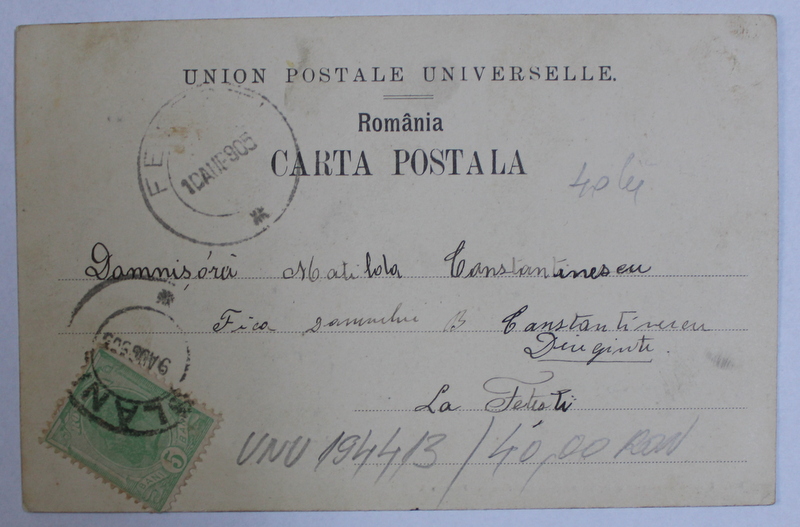 UNION POSTALE UNIVERSELLE.
România
CARTA POSTALA
FE
10 AUG 905
40 lei
Damnișóră Matilda Constantinescu
Fica Domnului B Constantinescu
Diriginte.
La Fetesti
9 AUG 905
SLĂN
5
BANI
UNU 194413 / 40,00 RON